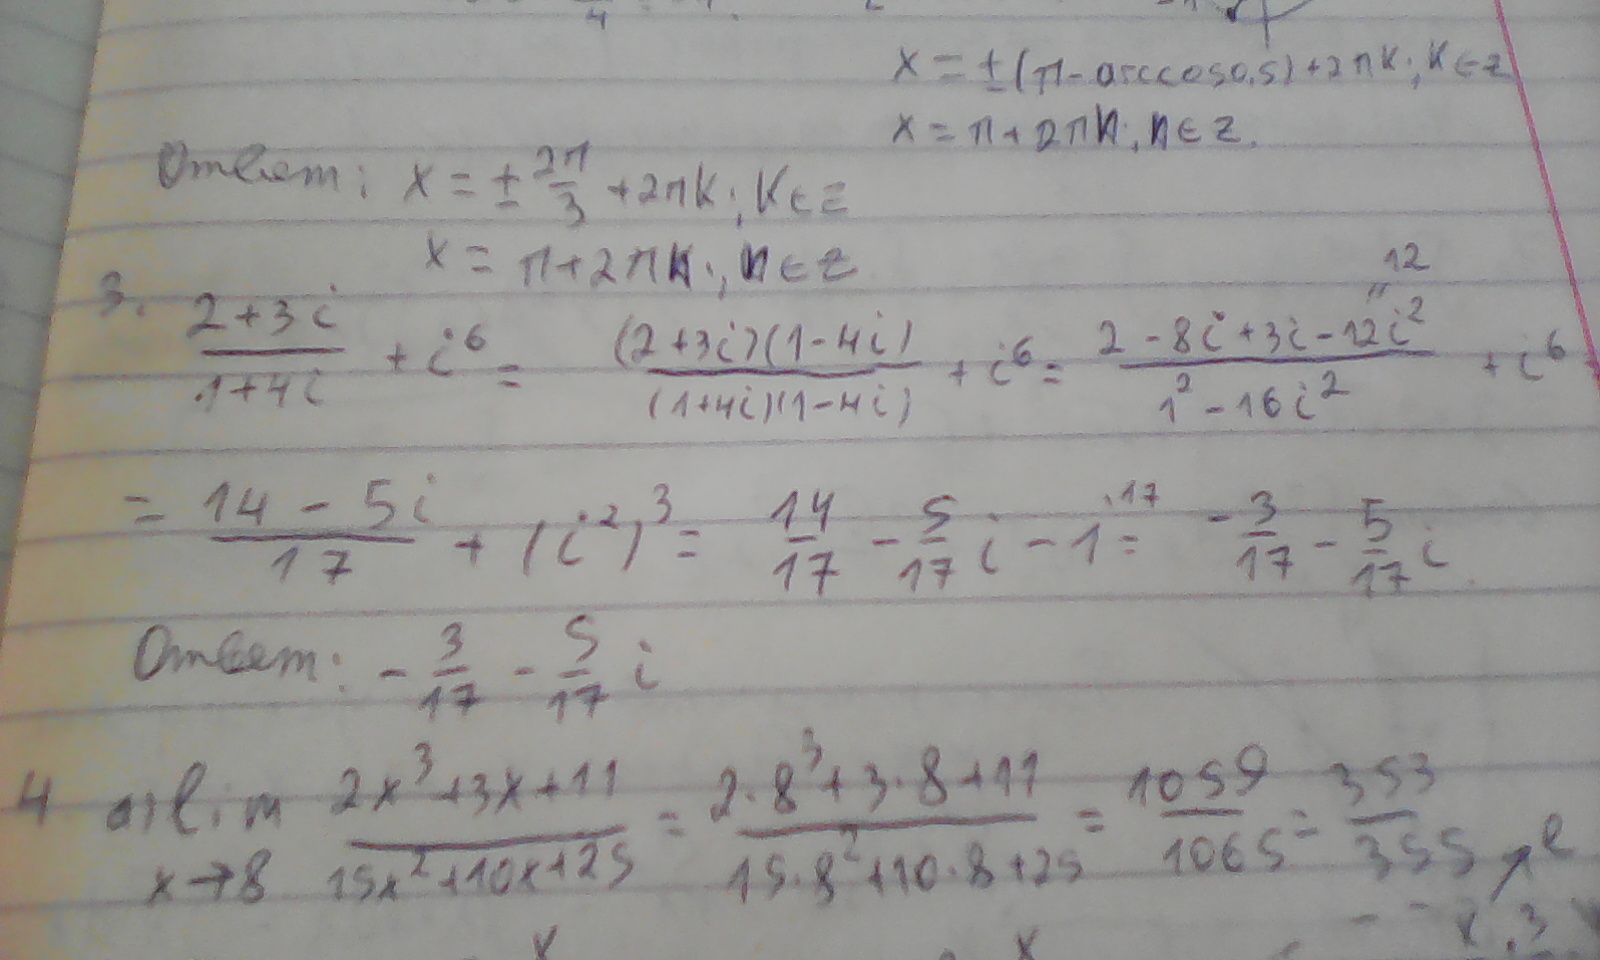 x = ±(π - arccos0,5) + 2πk; k ∈ z
x = π + 2πn; n ∈ z.
Ответ: x = ± 2π/3 + 2πk; k ∈ z
x = π + 2πn; n ∈ z
12
"
3. (2+3i)/(1+4i) + i^6 = ((2+3i)(1-4i))/((1+4i)(1-4i)) + i^6 = (2 - 8i + 3i - 12i^2)/(1^2 - 16i^2) + i^6
= (14 - 5i)/17 + (i^2)^3 = 14/17 - 5/17 i - 1^{\17} = - 3/17 - 5/17 i
Ответ: - 3/17 - 5/17 i
4 а) lim x→8 (2x^3+3x+11)/(15x^2+10x+25) = (2·8^3+3·8+11)/(15·8^2+10·8+25) = 1059/1065 = 353/355